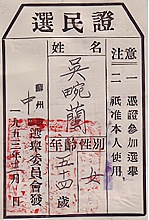 選民證
注意
一 憑證參加選舉
二 祇准本人使用
姓名
吳畹蘭
年齡 性別
五十四歲 女
蘇州
中
選舉委員會發
一九五三年